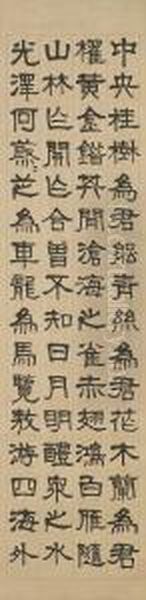 中央桂樹為君船青絲為君笮木蘭為君
櫂黃金錯其間滄海之雀赤翅鴻白雁隨
山林乍開乍合曾不知日月明醴泉之水
光澤何蔚〻芝為車龍為馬覽敖游四海外